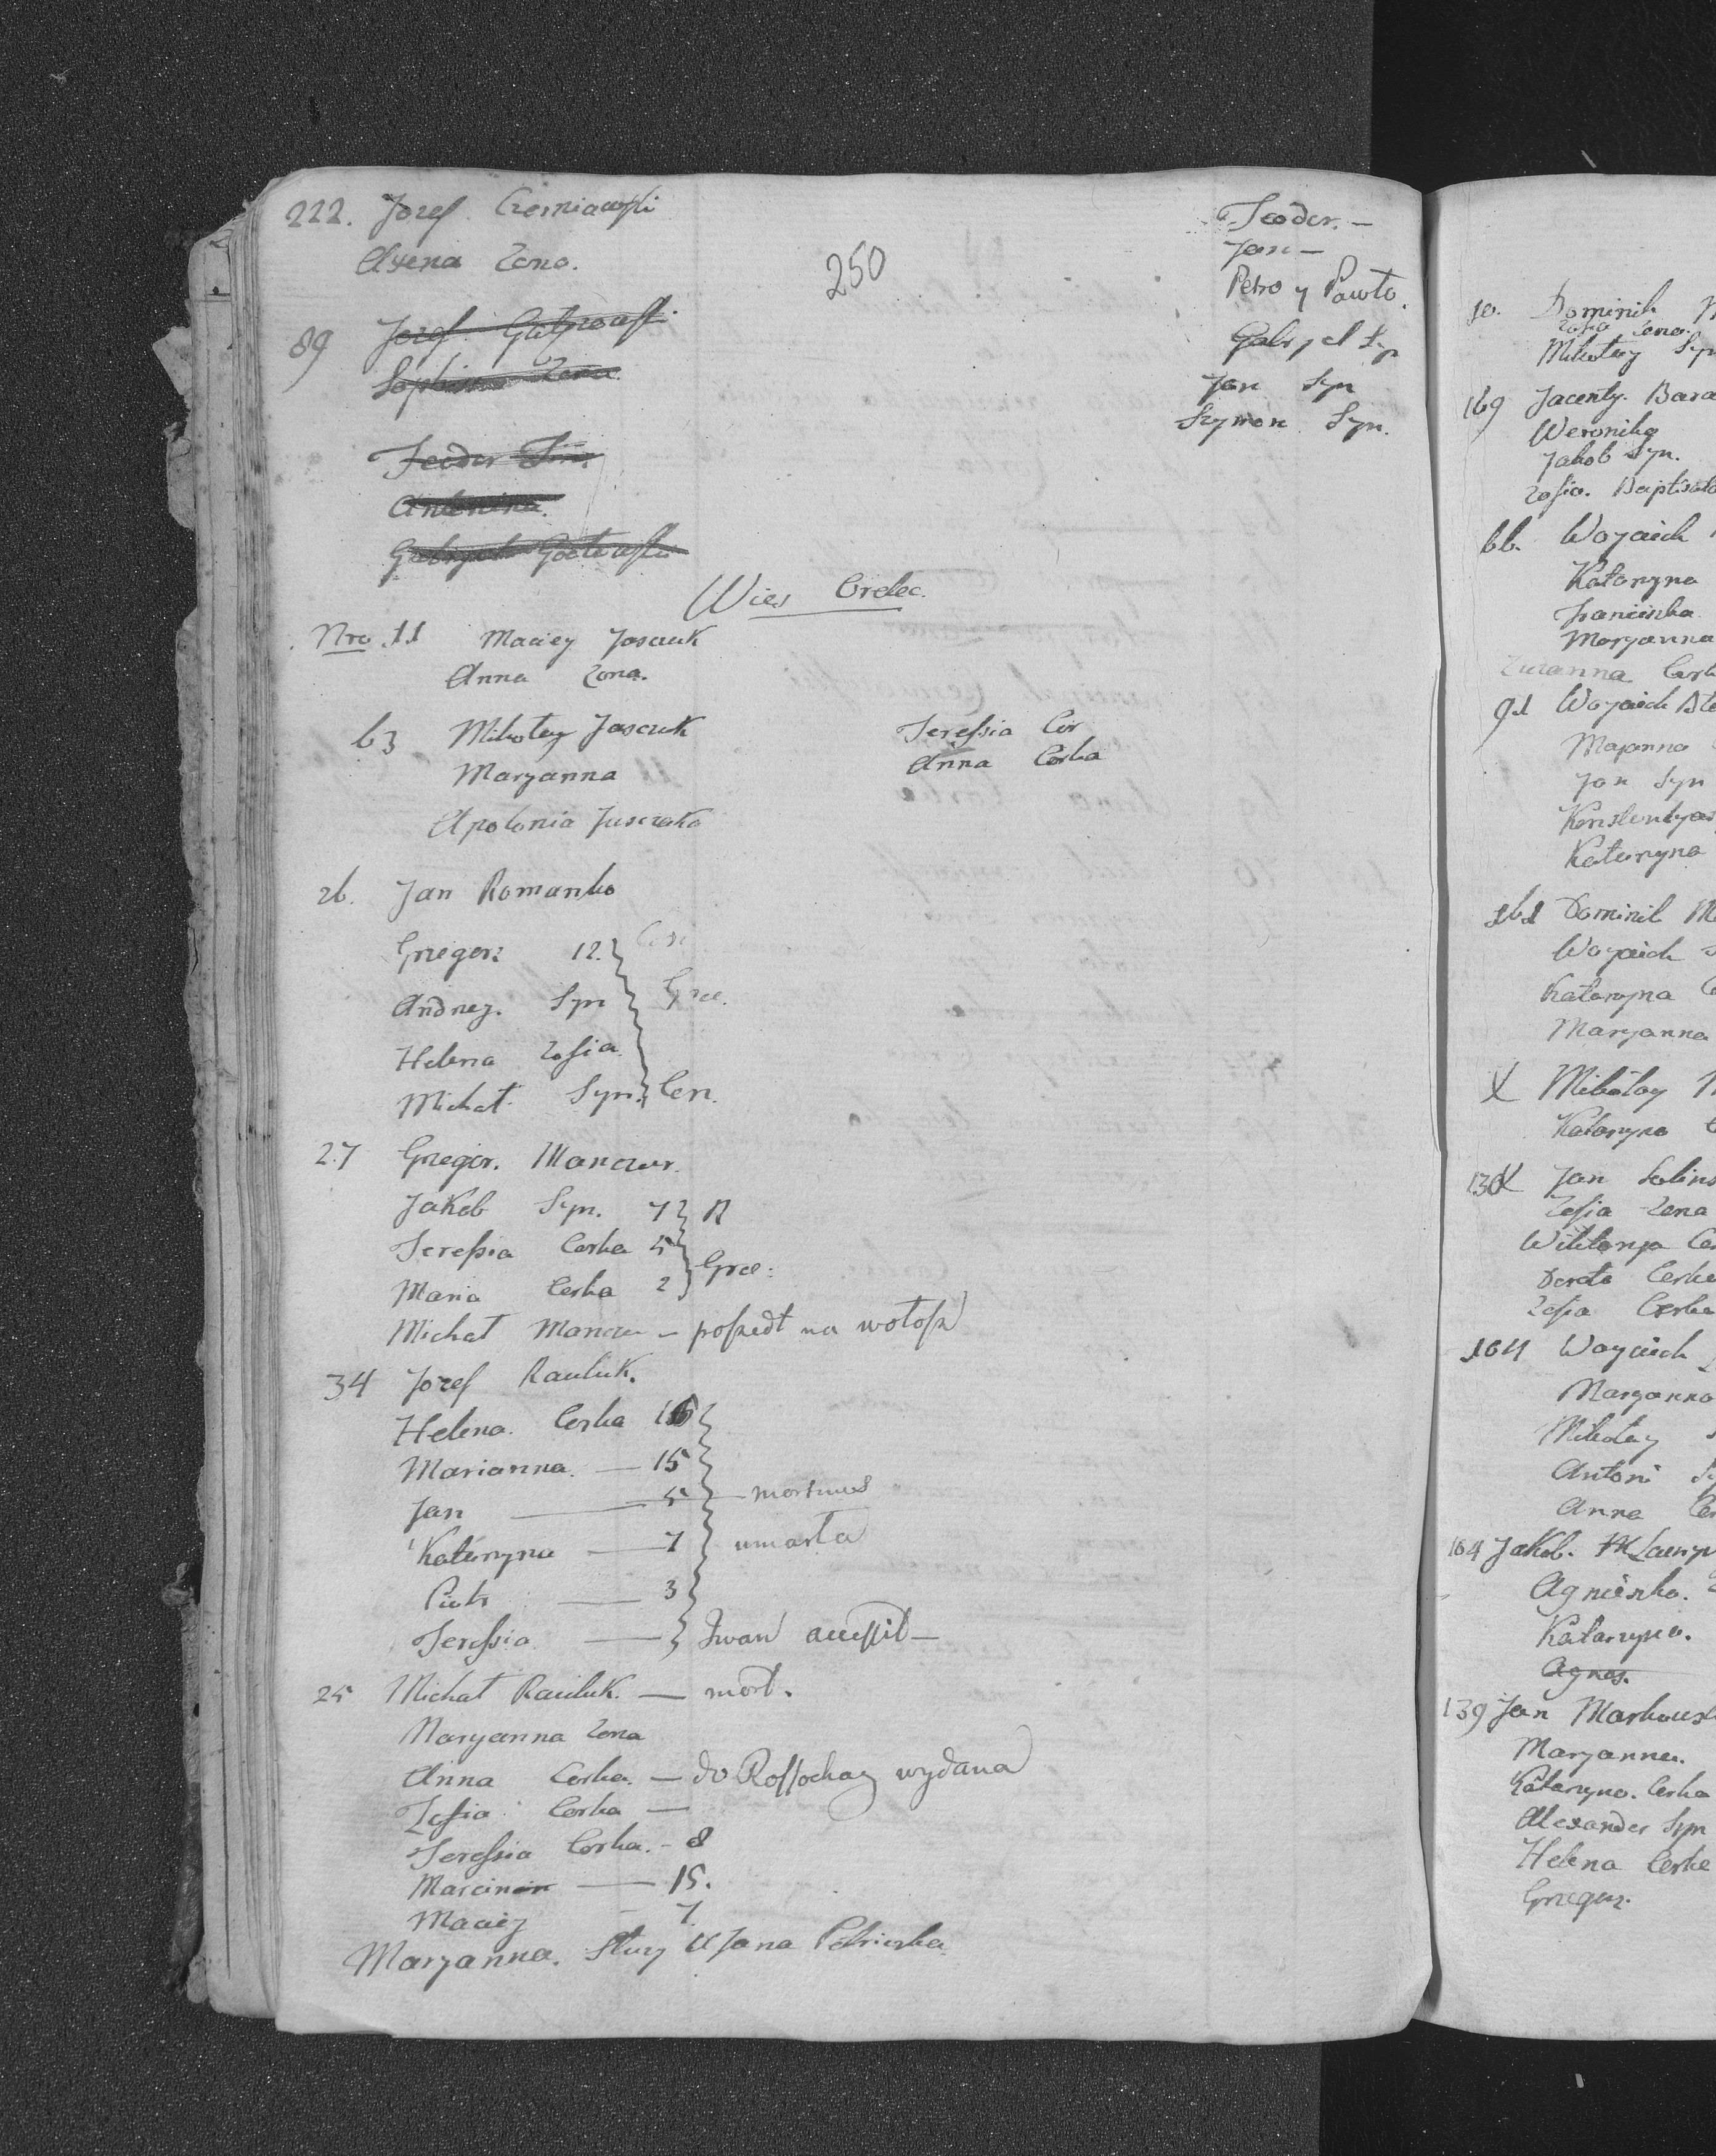 222. Jozef Czerniawski
Axena Zona.
250
Teodor. —
Jan —
Petro y Pawło.
Gabryel Syn
Jan Syn
Szymon Syn.
89 Jozef
Zona
Teodor Syn.
Antonina.
Gabryel
Wies Orelec.
Nro. 11 Maciey Jasczuk
Anna Zona.
63 Mikołay Jasczuk
Maryanna
Apolonia Jusczaka
Teressia Cor
Anna Corka
26. Jan Romanko
Grzegorz 12.
Andrzej. Syn Grae.
Helena Zofia
Michał Syn.
27 Grzegor. Manczur.
Jakob Syn. 7 R
Teressia Corka 5
Maria Corka 2 Grae:
Michał Manczu — poszedł na wołosz
34 Jozef Rauluk.
Helena. Corka
Marianna. — 15
Jan — 5 — mortuus
Kateryna — 7 umarła
Piotr — 3
Teressia — Iwan accessit —
25 Michał Rauluk. — mort.
Maryanna Zona
Anna Corka. — do Rossochacz wydana
Zofia Corka —
Teressia Corka. - 8
Marcin — 15.
Maciey - 7.
Maryanna. Słuzy U Jana
10. Dominik
Zofia Zona.
Mikołay Syn
169 Jacenty. Bara
Weronika
Jakob Syn.
Zofia.
66. Woyciech
Katarzyna
Franciszka
Maryanna
Zuzanna Cork
91 Woyciech
Maryanna
Jan Syn
Katarzyna
161 Dominik M
Woyciech
Katarzyna
Maryanna
X Mikołay
Katarzyna
130 Jan
Zofia Zona
Wiktorya Co
Dorota Corka
Zofia Corka
164 Woyciech
Maryanna
Mikołay
Antoni
Anna
164 Jakob.
Agnieszka.
Katarzyna.
Agnes.
139 Jan Markowsk
Maryanna.
Katarzyna. Corka
Alexander Syn
Helena Corke
Grzegorz.